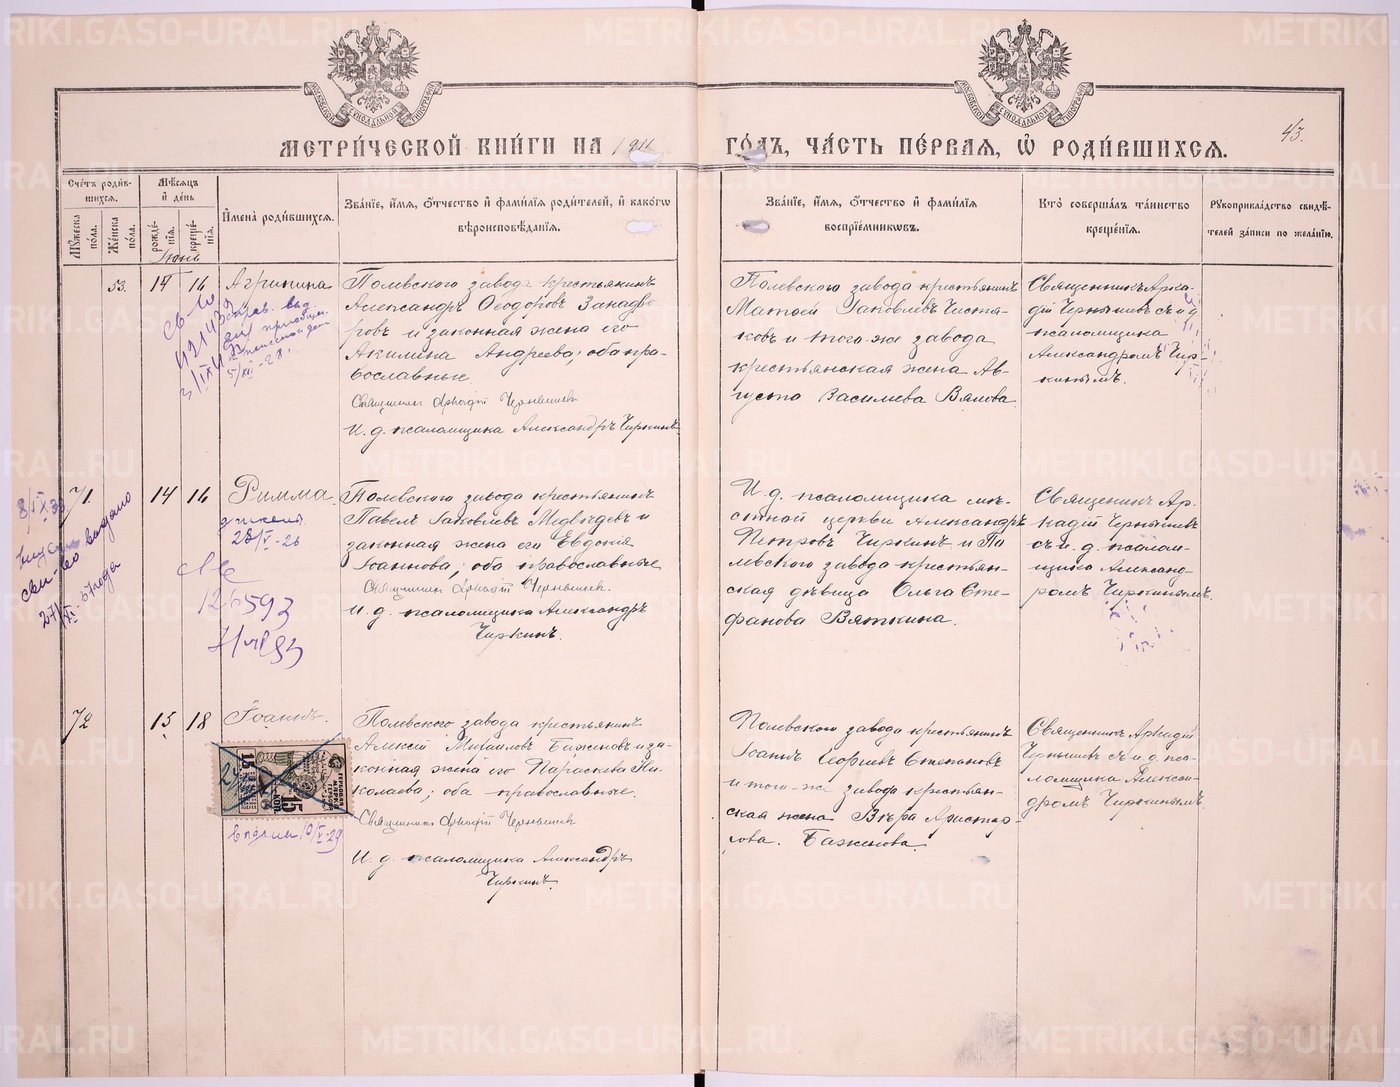 МЕТРИ́ЧЕСКОЙ КНИ́ГИ НА 1911
ГО́ДЪ, ЧА́СТЬ ПЕ́РВАЯ, Ѡ РОДИ́ВШИХСЯ.
43.
Сче́тъ роди́в-
шихся.
Мѣ́сяцъ
и́ де́нь
Му́жеска
по́ла.
Же́нска
по́ла.
рожде́-
нія.
креще́-
нія.
И́мена̀ роди́вшихся.
Зва́ніе, и́мя, о́тчество и́ фами́лія роди́телей, и́ како́гѡ
вѣроисповѣ́данія.
Зва́ніе, и́мя, о́тчество и́ фами́лія
воспріе́мниковъ.
Кто̀ соверша́лъ та́инство
креще́нія.
Рукоприкла́дство свидѣ́-
телей за́писи по жела́нію.
Іюнь
53. 14 16 Агрипина
Полевского завода крестьянинъ
Александръ Ѳеодоровъ Занадво-
ровъ и законная жена его
Акилина Андреева; оба пра-
вославные.
Священникъ Аркадій Чернышевъ
И. д. псаломщика Александръ Чиркинъ
Полевского завода крестьянинъ
Матѳей Іаковлевъ Чистя-
ковъ и того-же завода
крестьянская жена Ав-
густа Василиева Вялова.
Священникъ Арка-
дій Чернышевъ съ и. д.
псаломщика
Александромъ Чир-
кинымъ.
71. 14 16 Римма
28/V-26
126593
Полевского завода крестьянинъ
Павелъ Іаковлевъ Медвѣдевъ и
законная жена его Евдокія
Іоаннова; оба православные
Священникъ Аркадій Чернышевъ.
И. д. псаломщика Александръ
Чиркинъ.
И. д. псаломщика мѣ-
стной церкви Александръ
Петровъ Чиркинъ и По-
левского завода крестьян-
ская дѣвица Ольга Сте-
фанова Вяткина.
Священникъ Ар-
кадій Чернышевъ
съ и. д. псалом-
щика Александ-
ромъ Чиркинымъ.
72 15 18 Іоаннъ.
15
КОП
Полевского завода крестьянинъ
Алексій Михаиловъ Баженовъ и за-
конная жена его Параскева Ни-
колаева; оба православные.
Священникъ Аркадій Чернышевъ
И. д. псаломщика Александръ
Чиркинъ.
Полевского завода крестьянинъ
Іоаннъ Георгіевъ Степановъ
и того-же завода крестьян-
ская жена Вѣра Аристар-
хова Баженова.
Священникъ Аркадій
Чернышевъ съ и. д. пса-
ломщика Алексан-
дромъ Чиркинымъ.
METRIKI.GASO-URAL.RU